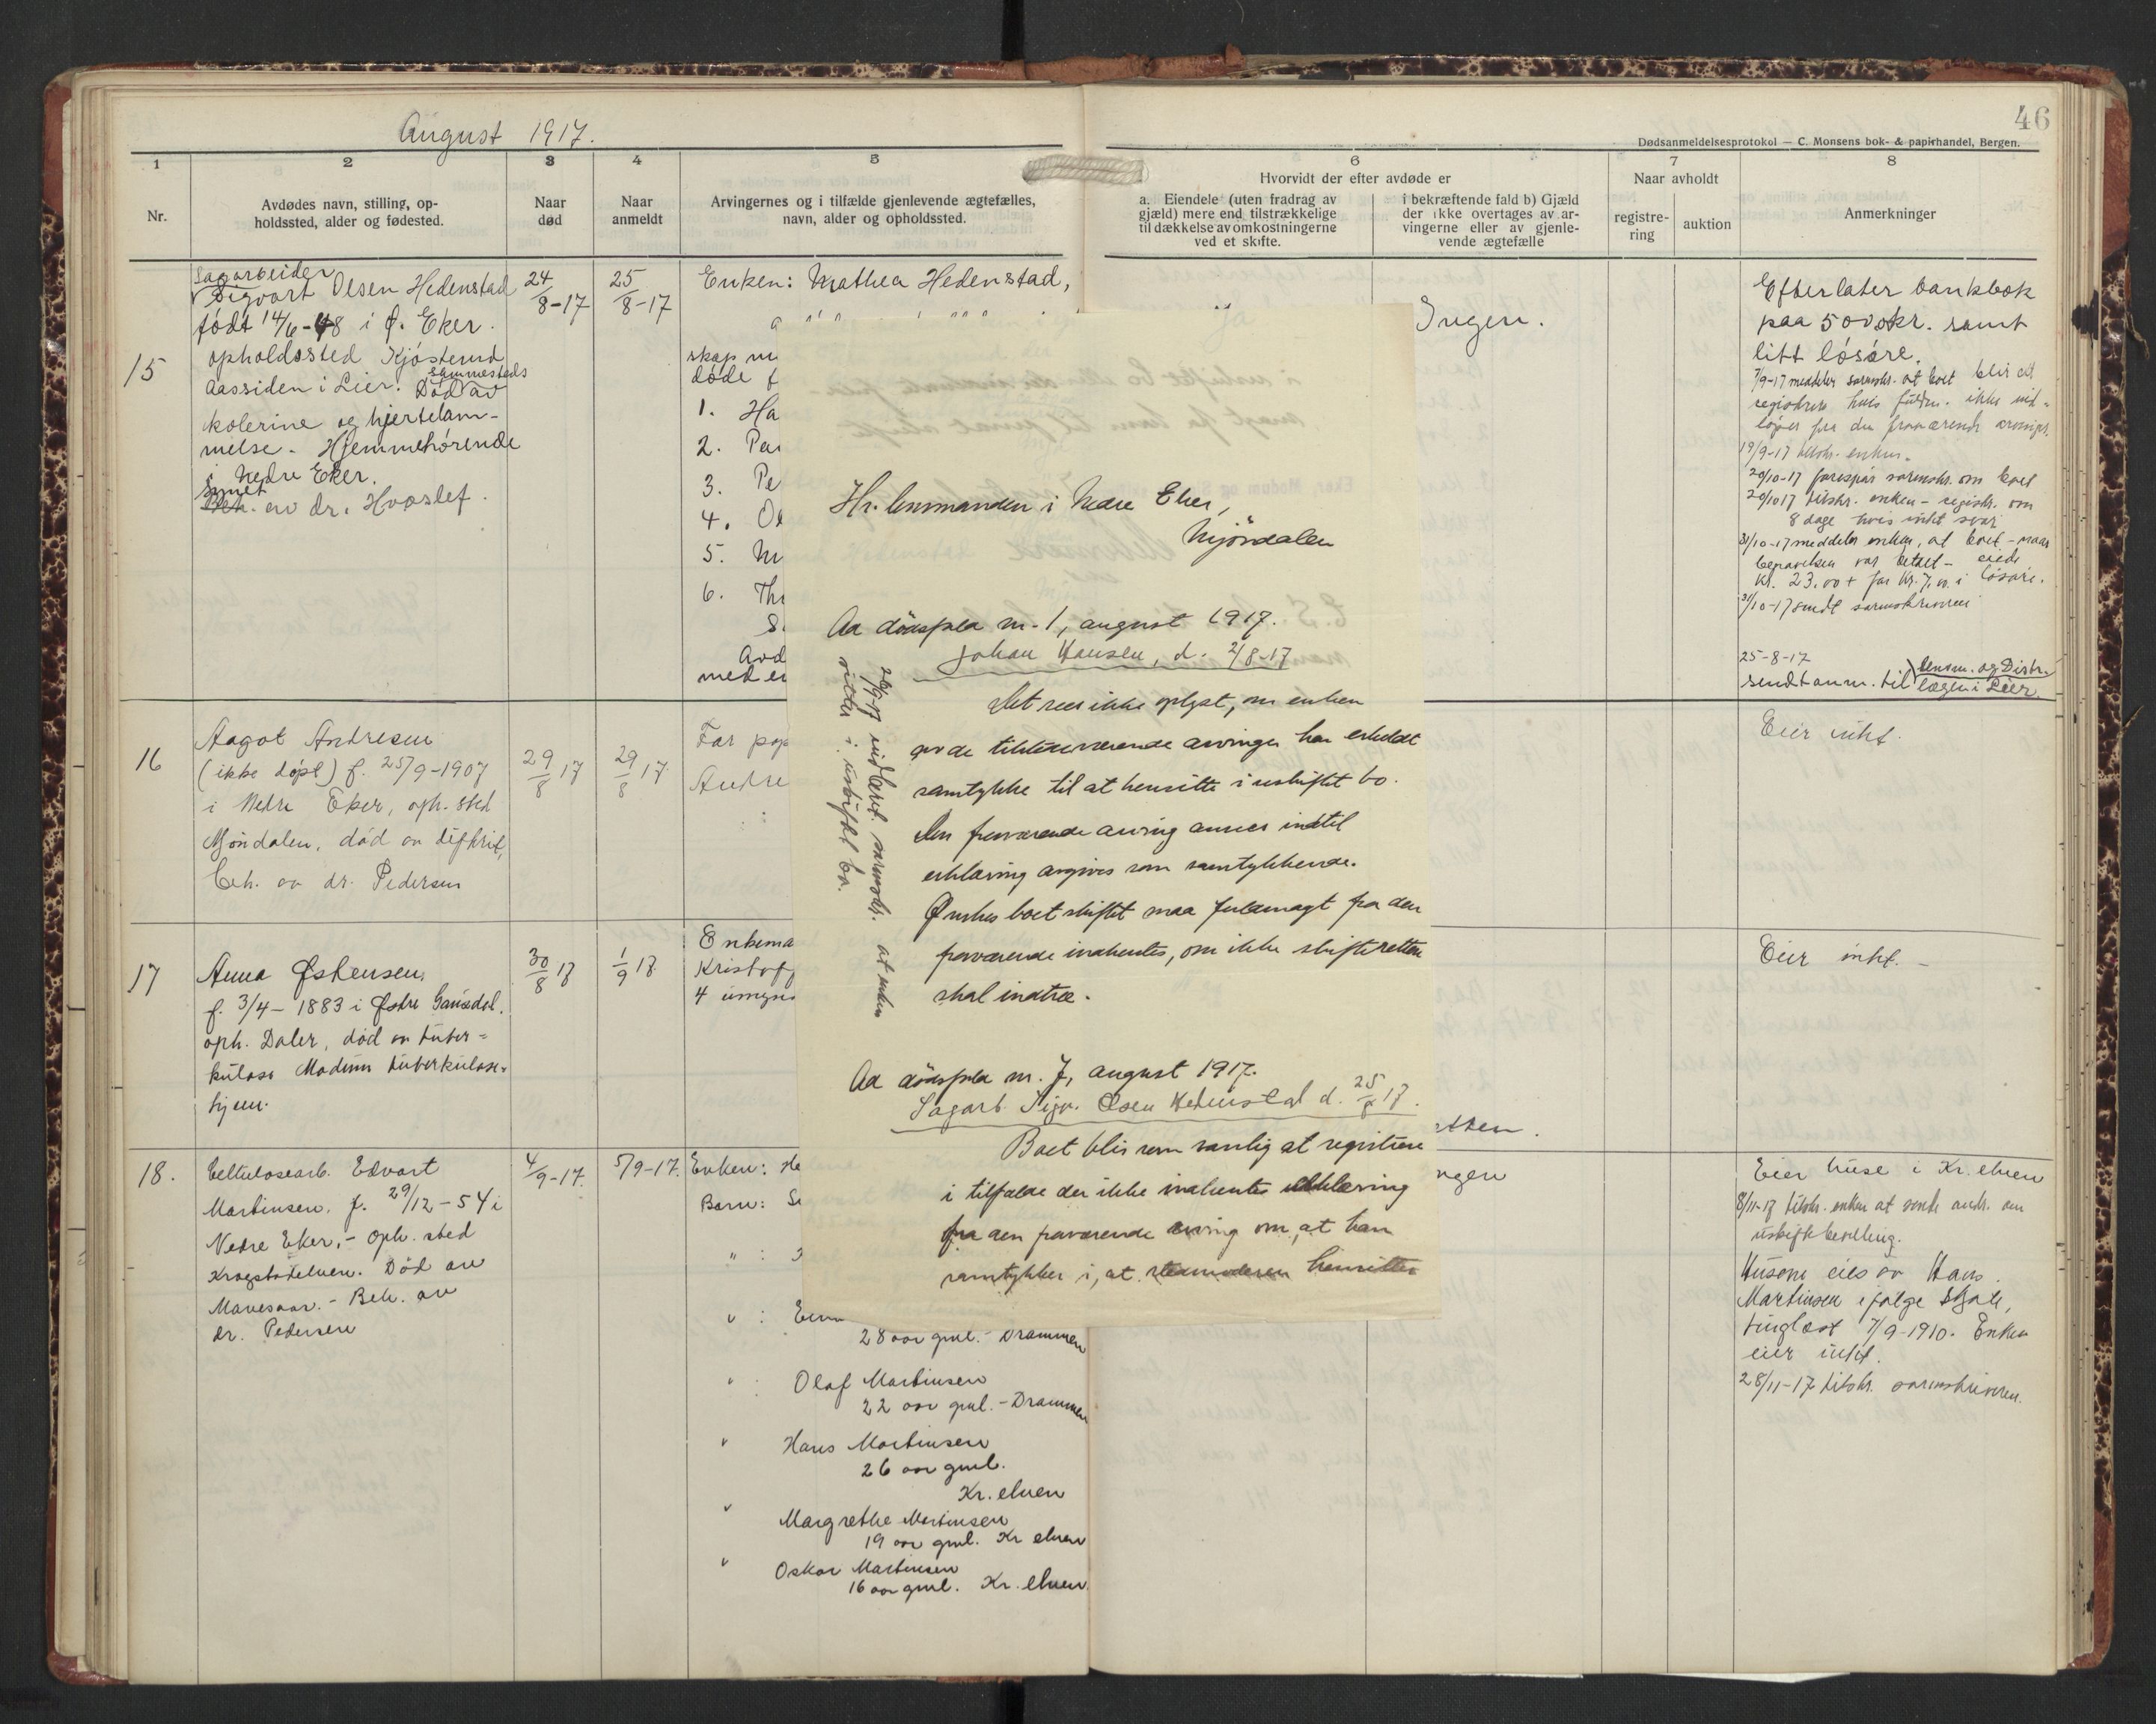 August 1917.
46
Dødsanmeldelsesprotokol — C. Monsens bok- & papirhandel, Bergen.
1
2
3
4
5
6
7
8
Nr.
Avdødes navn, stilling, op-
holdssted, alder og fødested.
Naar
død
Naar
anmeldt
Arvingernes og i tilfælde gjenlevende ægtefælles,
navn, alder og opholdssted.
Hvorvidt der efter avdøde er
a. Eiendele (uten fradrag av
gjæld) mere end tilstrækkelige
til dækkelse av omkostningerne
ved et skifte.
i bekræftende fald b) Gjæld
der ikke overtages av ar-
vingerne eller av gjenle-
vende ægtefælle
Naar avholdt
registre-
ring
auktion
Anmerkninger
15
Sagarbeider
Sigvart Olsen Hedenstad
født 14/6-48 i Ø. Eker.
opholdssted Kjøsterud
Aassiden i Lier. Død av
sammesteds
kolerine og hjertelam-
melse. Hjemmehørende
i Nedre Eker.
synet
av dr. Hvoslef.
24/8-17
25/8-17
Enken: Mathea Hedenstad,
skap m
døde f
1. Ha
2. Pau
3. Pe
4. Ol
5. M
6. Th
S.
Avd
med en
Ja
Ingen.
Efterlater bankbok
paa 500 kr. samt
litt løsøre.
7/9-17 meddeler sorenskr. at boet blir at
registrere hvis fuldm. ikke ind-
løper fra den fraværende arving.
19/9-17 tilskr. enken.
20/10-17 forespør sorenskr. om boet
20/10 17 tilskr. enken - registr. om
8 dage hvis intet svar
31/10-17 meddeler enken, at boet - naar
begravelsen var betalt - eiede
kr. 23,00 + for kr. 7,00 i løsøre.
31/10-17 sendt sorenskriveren
25-8-17
sendt anm. til lensm. og Distr.
lægen i Lier.
16
Aagot Andresen
(ikke døpt) f. 25/9-1907
i Nedre Eker, oph. sted
Mjøndalen, død av difterit,
beh. av dr. Pedersen
29/8 17
29/8 17.
Far pap
Andre
Eier intet.
17
Anna Østensen,
f. 3/4-1883 i Østre Gausdal.
oph. Daler, død av tuber-
kulose Modum tuberkulose-
hjem.
30/8 17
1/9 17.
Enkema
Kristof
4 umyn
Eier intet. -
18.
Cellulosearb. Edvart
Martinsen, f. 29/12-54 i
Nedre Eker, - oph. sted
Krogstadelven. Død av
Mavesaar. - Beh. av
dr. Pedersen
4/9-17.
5/9-17.
Enken: He
Barn: Se
" :
" : Ein
28 aar gml. - Drammen
" : Olaf Martinsen
22 aar gml. - Drammen
" Hans Martinsen
26 aar gml.
Kr. elven
" Margrethe Martinsen
19 aar gml. Kr elven
" Oskar Martinsen
16 aar gml. Kr. elven
Eier huse i Kr. elven
8/11-17 tilskr. enken at sende andr. om
uskiftebevilling.
Husene eies av Hans
Martinsen ifølge Skjøte,
tinglæst 7/9-1910. Enken
eier intet.
28/11-17 tilskr. sorenskriveren.
Hr. lensmanden i Nedre Eker,
Mjøndalen
Ad dødsfald nr. 1, august 1917.
Johan Hansen, d. 2/8-17
Det sees ikke oplyst, om enken
av de tilstedeværende arvinger har erholdt
samtykke til at hensitte i uskiftet bo.
Den fraværende arving ansees indtil
erklæring avgives som samtykkende.
Ønskes boet skiftet maa fuldmagt fra den
fraværende indhentes, om ikke skifteretten
skal indtræ.
Ad dødsfald nr. 7, august 1917.
Sagarb. Sigv. Olsen Hedenstad d. 25/8 17.
Boet blir som vanlig at registrere
i tilfælde der ikke indhentes erklæring
fra den fraværende arving om, at han
samtykker i, at stedmoderen hensitter
26/9-17 indberet. sorenskr. at enken
sitter i uskiftet bo.